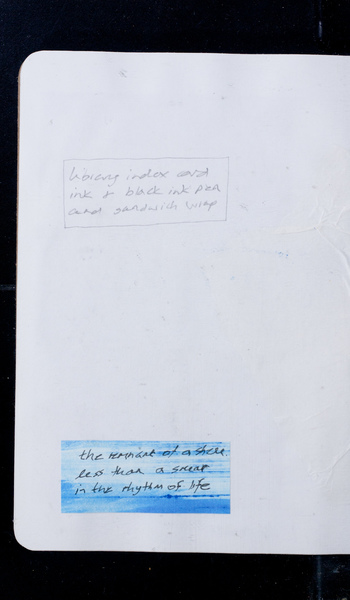 library index card
ink & black ink pen
and sandwich wrap
the remnant of a
less than a
in the rhythm of life